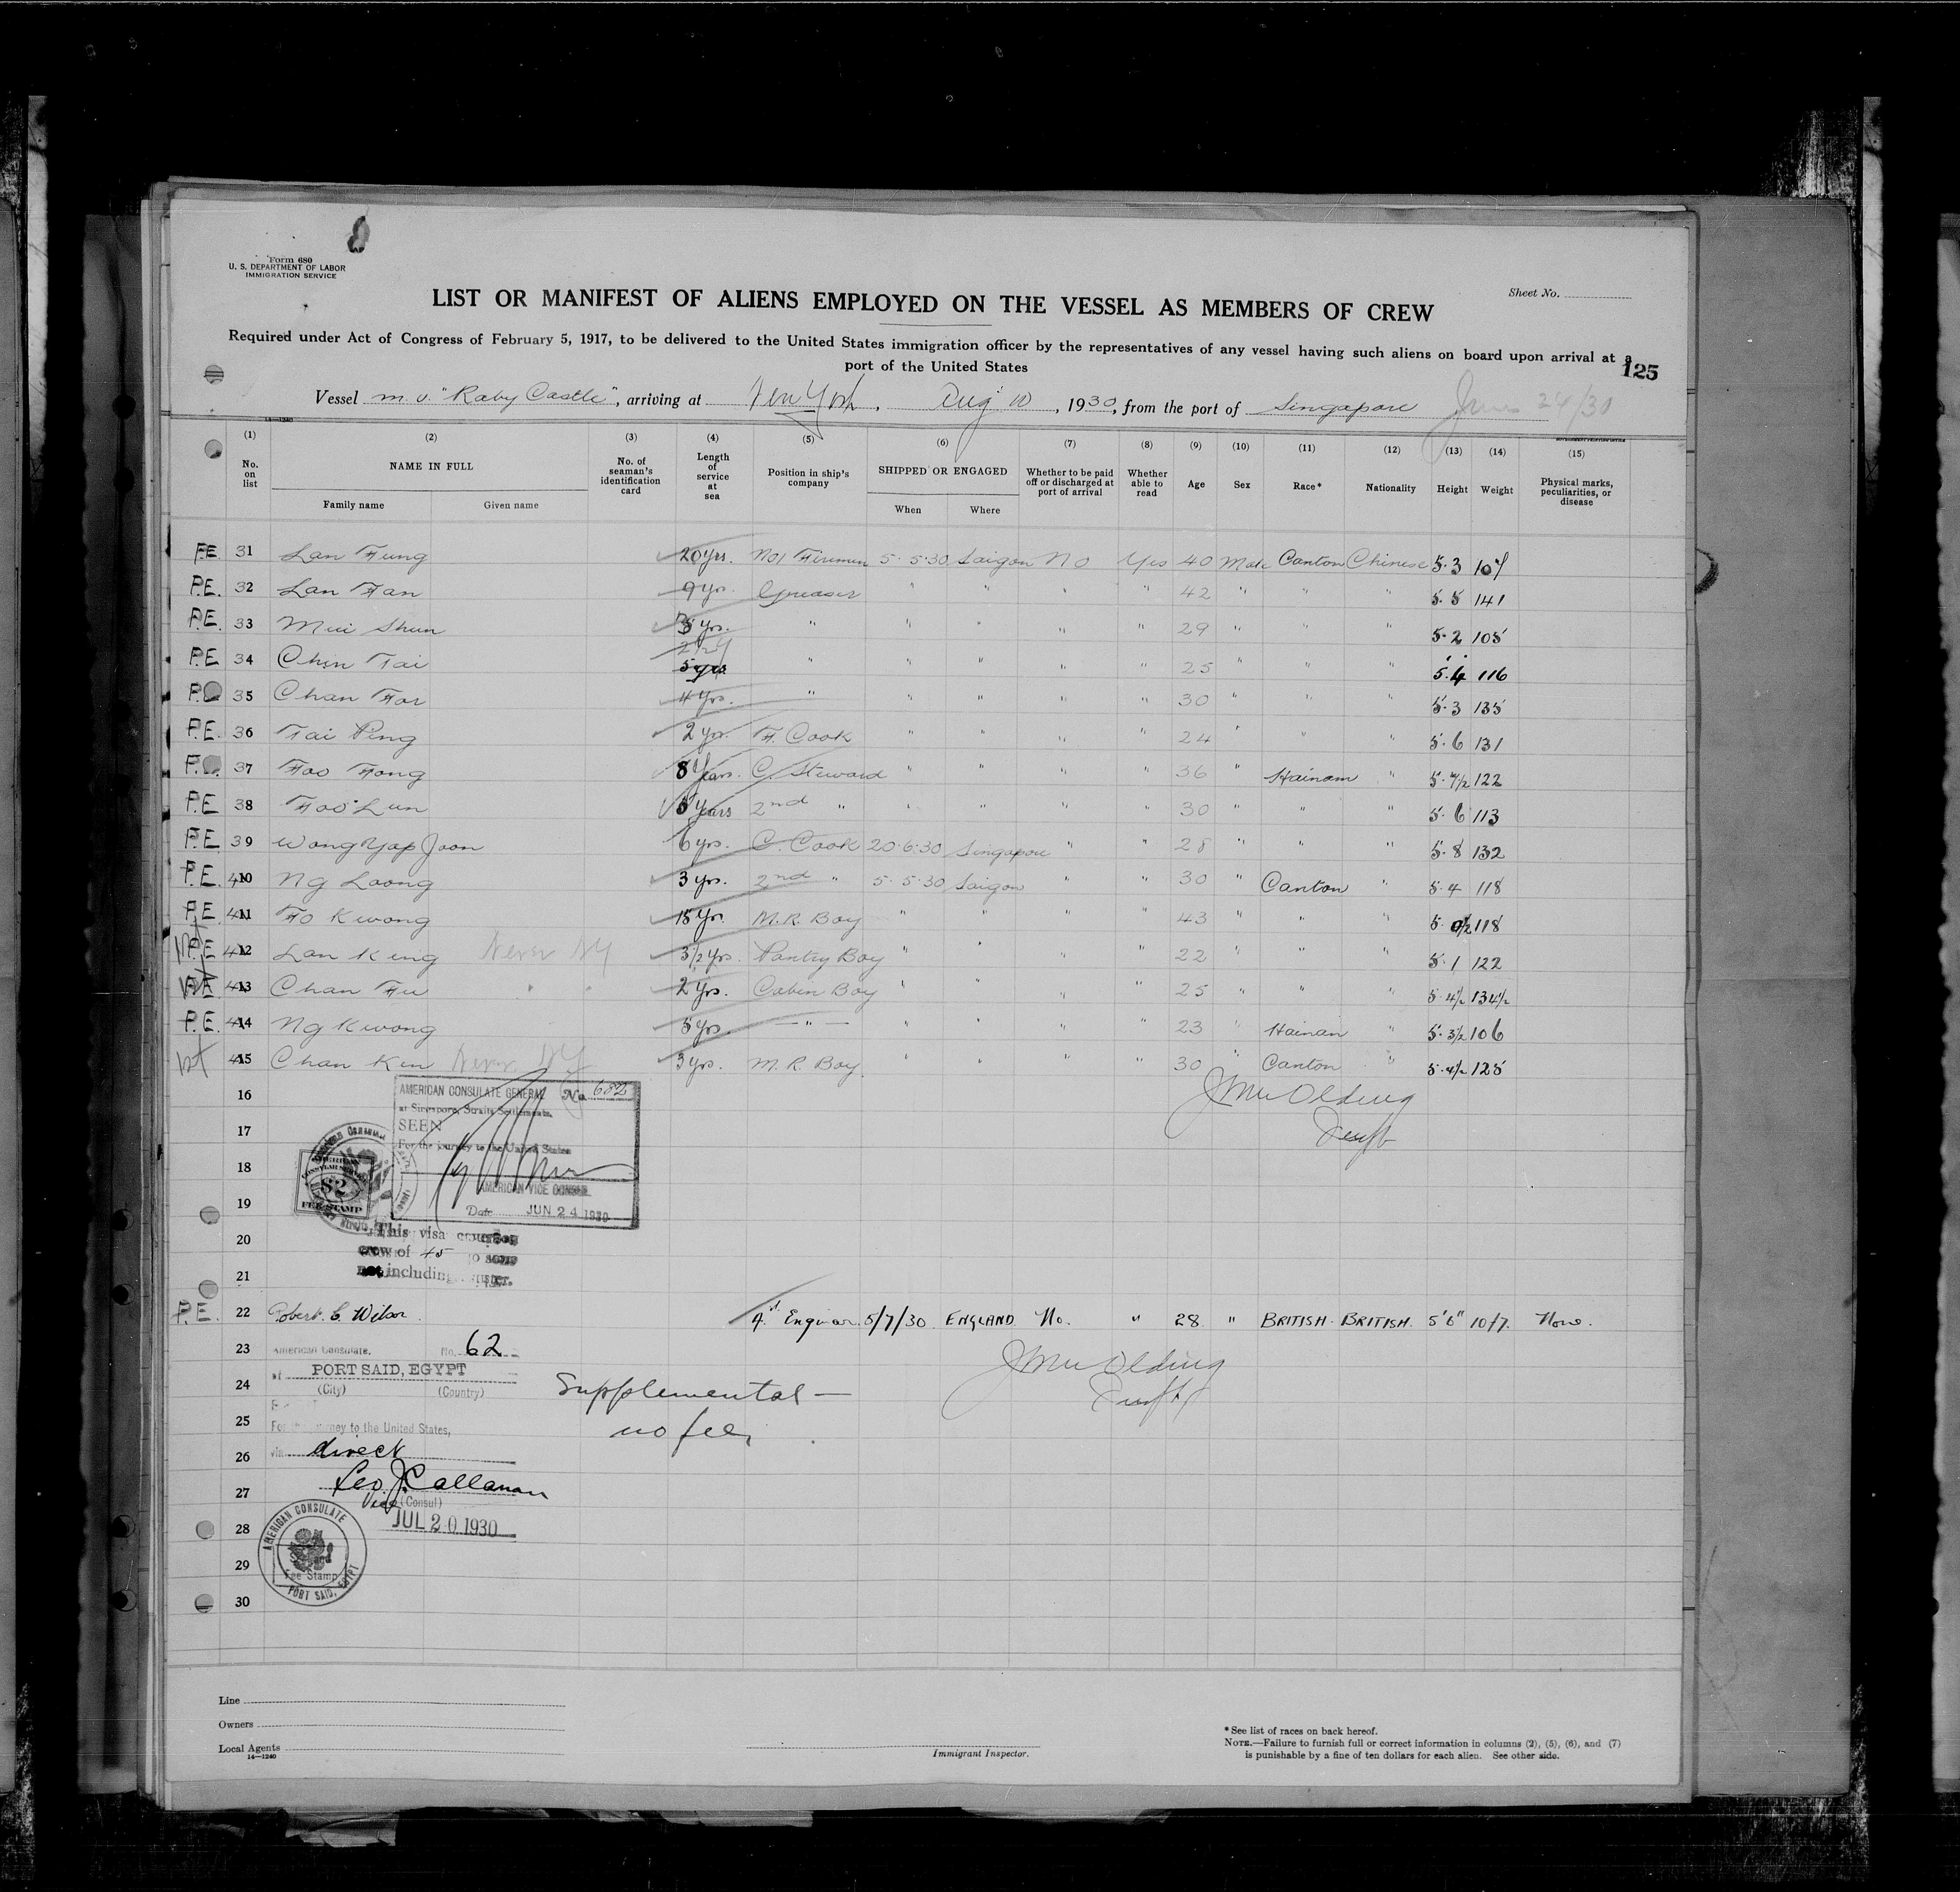 Form 680
U. S. DEPARTMENT OF LABOR
IMMIGRATION SERVICE
Sheet No.
LIST OR MANIFEST OF ALIENS EMPLOYED ON THE VESSEL AS MEMBERS OF CREW
Required under Act of Congress of February 5, 1917, to be delivered to the United States immigration officer by the representatives of any vessel having such aliens on board upon arrival at a
port of the United States
125
Vessel m.v. "Raby Castle", arriving at New York, Aug 10, 1930, from the port of Singapore June 24/30
14—1240
(1) (2) (3) (4) (5) (6) (7) (8) (9) (10) (11) (12) (13) (14) (15)
No. on list NAME IN FULL Family name Given name No. of seaman's identification card Length of service at sea Position in ship's company SHIPPED OR ENGAGED When Where Whether to be paid off or discharged at port of arrival Whether able to read Age Sex Race* Nationality Height Weight Physical marks, peculiarities, or disease
P.E. 31 Lan Fung 20 yrs. No 1 Fireman 5.5.30 Saigon No Yes 40 Male Canton Chinese 5.3
P.E. 32 Lan Fan 9 yrs. Greaser " " " " 42 " " " 5.5 141
P.E. 33 Mui Shun yrs. " " " " " 29 " " " 5.2 105
P.E. 34 Chin Tai 5 yrs " " " " " 25 " " " 5.4 116
P. 35 Chan For 4 yrs. " " " " " 30 " " " 5.3 135
P.E. 36 Tai Ping 2 yrs. F. Cook " " " " 24 " " " 5.6 131
P. 37 Foo Fong 8 Years. C. Steward " " " " 36 " Hainam " 5.7½ 122
P.E. 38 Foo Lun Years 2nd " " " " " 30 " " " 5.6 113
P.E. 39 Wong Yap Joon 6 yrs. C. Cook 20.6.30 Singapore " " 28 " " " 5.8 132
P.E. 10 Ng Loong 3 yrs. 2nd " 5.5.30 Saigon " " 30 " Canton " 5.4 118
P.E. 11 Fo Kwong 15 yr. M.R. Boy " " " " 43 " " " 5.0½ 118
P.E. 12 Lan King Never NY 3½ yrs. Pantry Boy " " " " 22 " " " 5.1 122
13 Chan Fu " " 2 yrs. Cabin Boy " " " " 25 " " " 5.4½ 134½
P.E. 14 Ng Kwong 5 yrs. — " — " " " " 23 " Hainan " 5.3½ 106
1st 15 Chan Ken Never NY 3 yrs. M.R. Boy. " " " " 30 " Canton " 5.4½ 125
16
17
18
19
20
21
AMERICAN CONSULATE GENERAL No. 682
at Singapore, Straits Settlements.
SEEN
For the journey to the United States
AMERICAN VICE CONSUL
Date JUN 24 1930
AMERICAN
CONSULAR SERVICE
$2
FEE STAMP
This visa
crew of 45
not including
P.E. 22 Robert C. Wilson. Engineer. 5/7/30 ENGLAND No. " 28 " BRITISH. BRITISH. 5'6" 10/7. None.
23
24
25
26
27
28
29
30
American Consulate, No. 62
at PORT SAID, EGYPT
(City) (Country)
For the journey to the United States,
via direct
Leo. J. Callanan
Vice (Consul)
JUL 20 1930
AMERICAN CONSULATE
Fee Stamp
PORT SAID, EGYPT
Supplemental —
no fee,
Line
Owners
Local Agents
14—1240
Immigrant Inspector.
* See list of races on back hereof.
NOTE.—Failure to furnish full or correct information in columns (2), (5), (6), and (7)
is punishable by a fine of ten dollars for each alien. See other side.